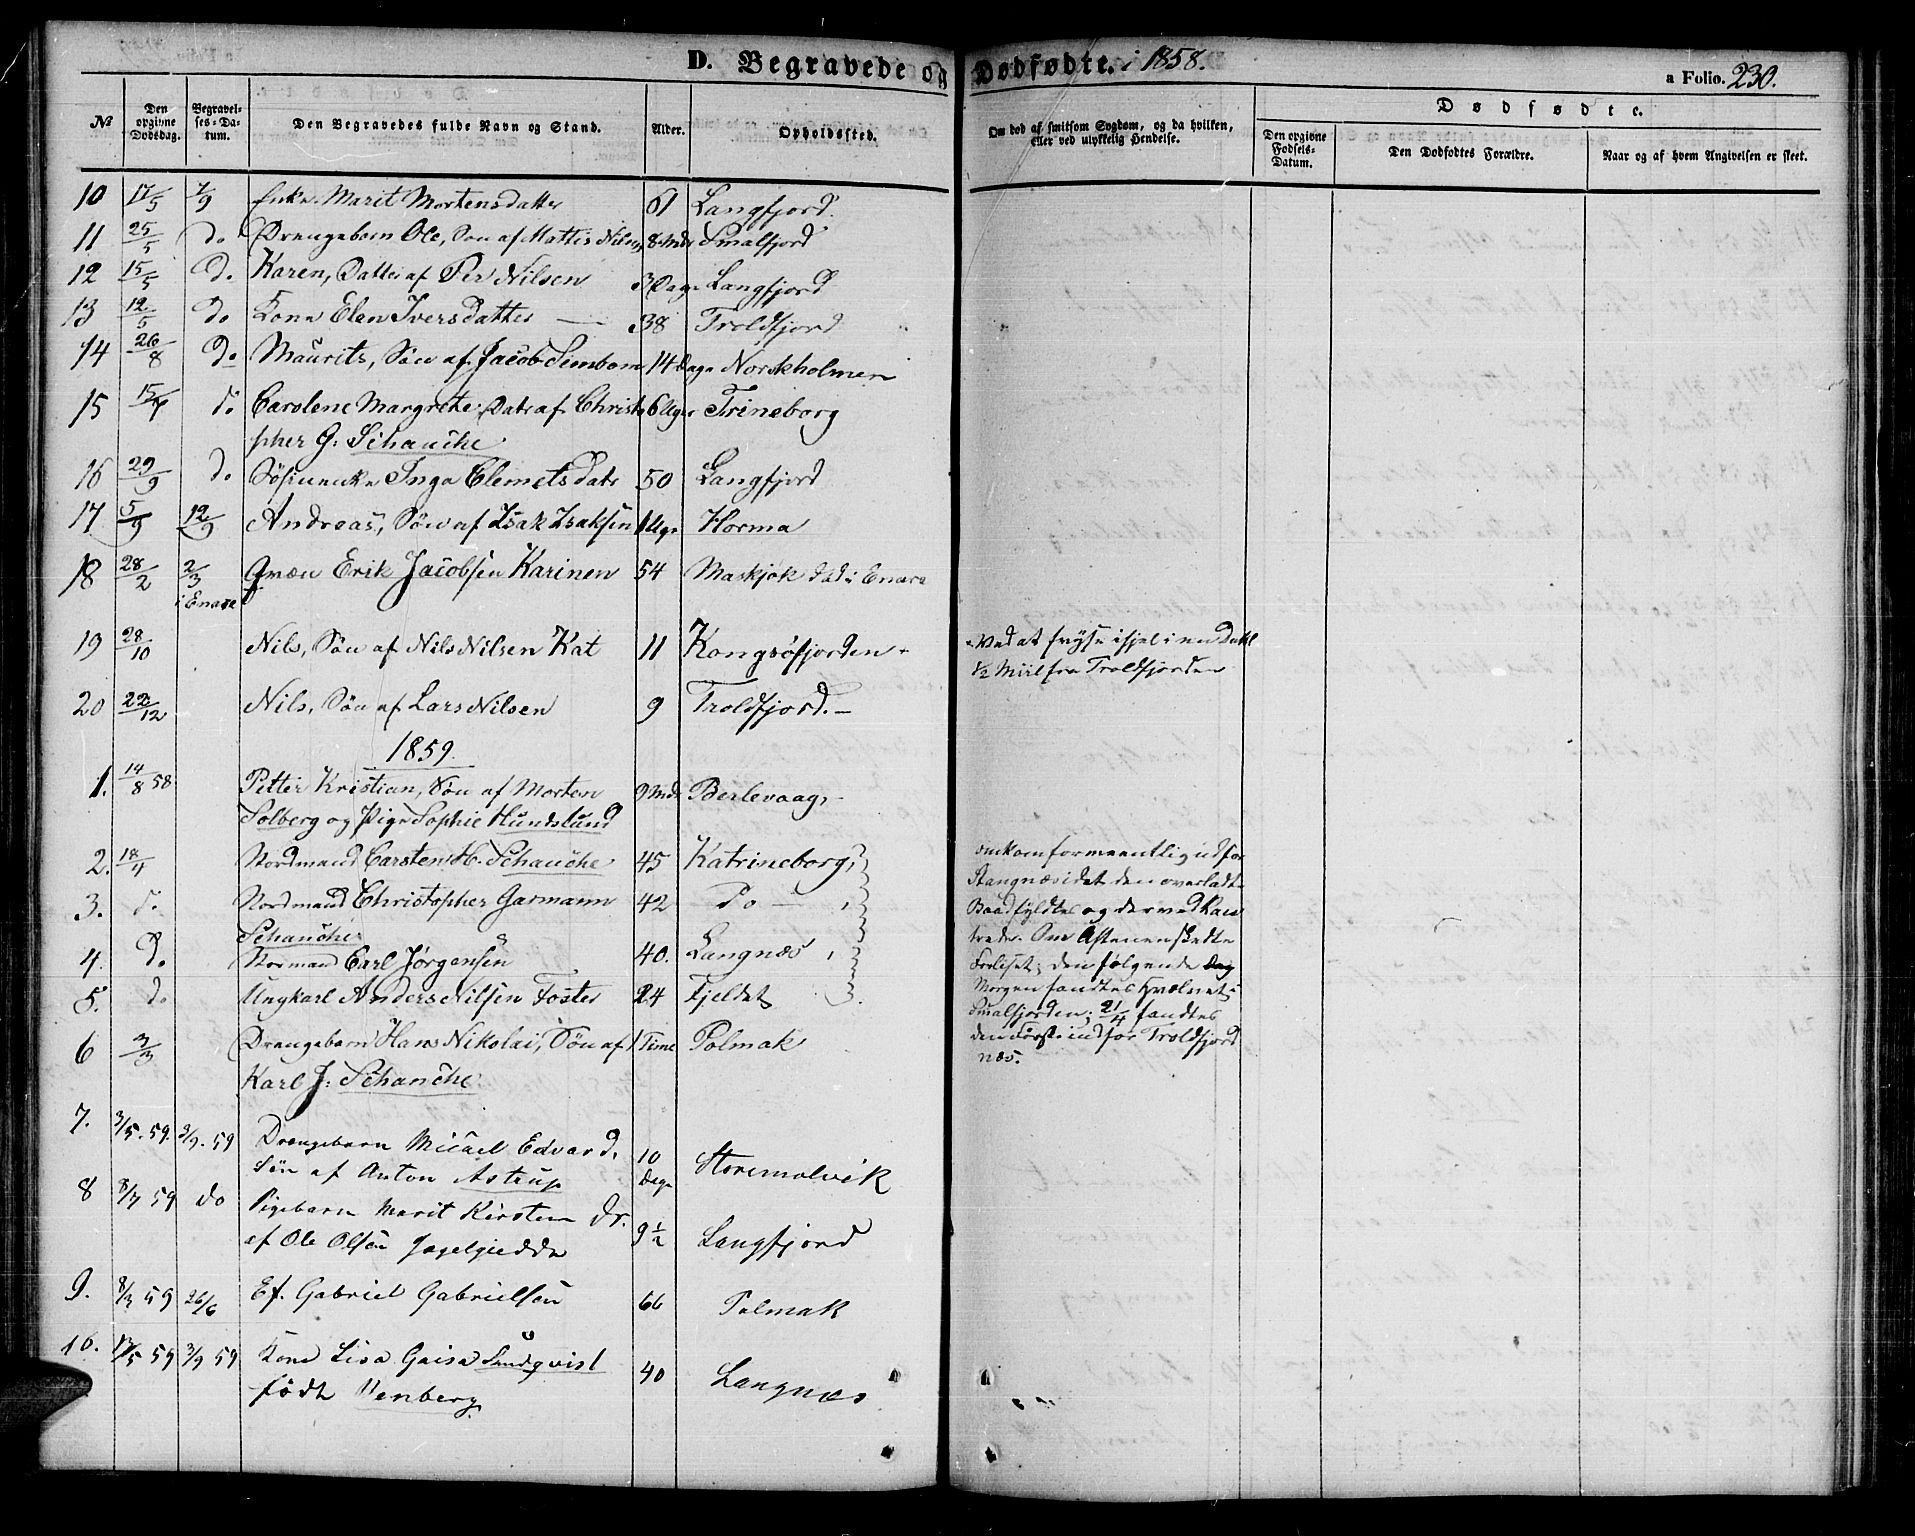 D. Begravede og Dødfødte. i 1858.
a Folio. 230.
№
Den opgivne Dødsdag.
Begravelses-Datum.
Den Begravedes fulde Navn og Stand.
Alder.
Opholdssted.
Om død af smitsom Sygdom, og da hvilken, eller ved ulykkelig Hendelse.
Dødfødte.
Den opgivne Fødsels-Datum.
Den Dødfødtes Forældre.
Naar og af hvem Angivelsen er skeet.
10 17/5 7/9 Enke Marit Mortensdatter 61 Langfjord.
11 25/5 do Drengebarn Ole, Søn af Mattis Nilsen 8 Mdr Smalfjord
12 15/5 do Karen, Datter af Per Nilsen 3 Dage Langfjord
13 12/5 do Kone Elen Iversdatter — 38 Troldfjord
14 26/8 do Maurits, Søn af Jacob Simbom 14 Dage Norskholmen
15 do Carolene Margrete Datr af Christo 6 Uger Trineborg
pher G. Schanche
16 29/9 do Inga Clemetsdatr 50 Langfjord
17 5/9 12/9 Andreas, Søn af Isak Isaksen 1 Uge Horma
18 28/2 2/3 Qvæn Erik Jacobsen Karinen 54 Maskjok død i Enare
i Enare
19 28/10 Nils, Søn af Nils Nilsen Kat 11 Kongsöfjorden Ved at fryse ihjel i en Dahl
1/2 Miil fra Troldfjorden
20 22/12 Nils, Søn af Lars Nilsen 9 Troldfjord. —
1859.
1. 14/8 58 Petter Kristian, Søn af Morten 9 Mdr Berlevaag, —
Solberg og Pige Sophie Hundslund
2. 18/4 Nordmand Carsten H. Schanche 45 Katrineborg,
3. do Nordmand Christopher Garmann 42 Do —
Schanche
4. do Normand Carl Jørgensen 40. Langnæs,
5. do Ungkarl Anders Nilsen Foster 24 Fjeldet
omkom formeentlig udfor
Stangnæsidet den overladte
Baad fyldtes og derved kan
trede. Om Aftenen skedte
Forliset; den følgende Dag
Morgen fandtes Hvælvet i
Smalfjorden; 21/4 fandtes
den Første indfor Troldfjord
næs.
6 3/3 Drengebarn Hans Nikolai, Søn af 1 Time Polmak
Karl J. Schanche
7. 3/5. 59. 3/9. 59 Drengebarn Micael Edvard, 10 Dage Storemolvik
Søn af Anton Astrup
8 8/7 59 do Pigebarn Marit Kirsten Dr. 9 1/2 Langfjord
af Ole Olsen Jagelgiedde
9. 8/3 59 26/6 Ef. Gabriel Gabrielsen 66 Polmak
10. 13/5 59 3/9 59 Kone Lisa Gaisa Sundqvist 40 Langnæs
født Wenberg.